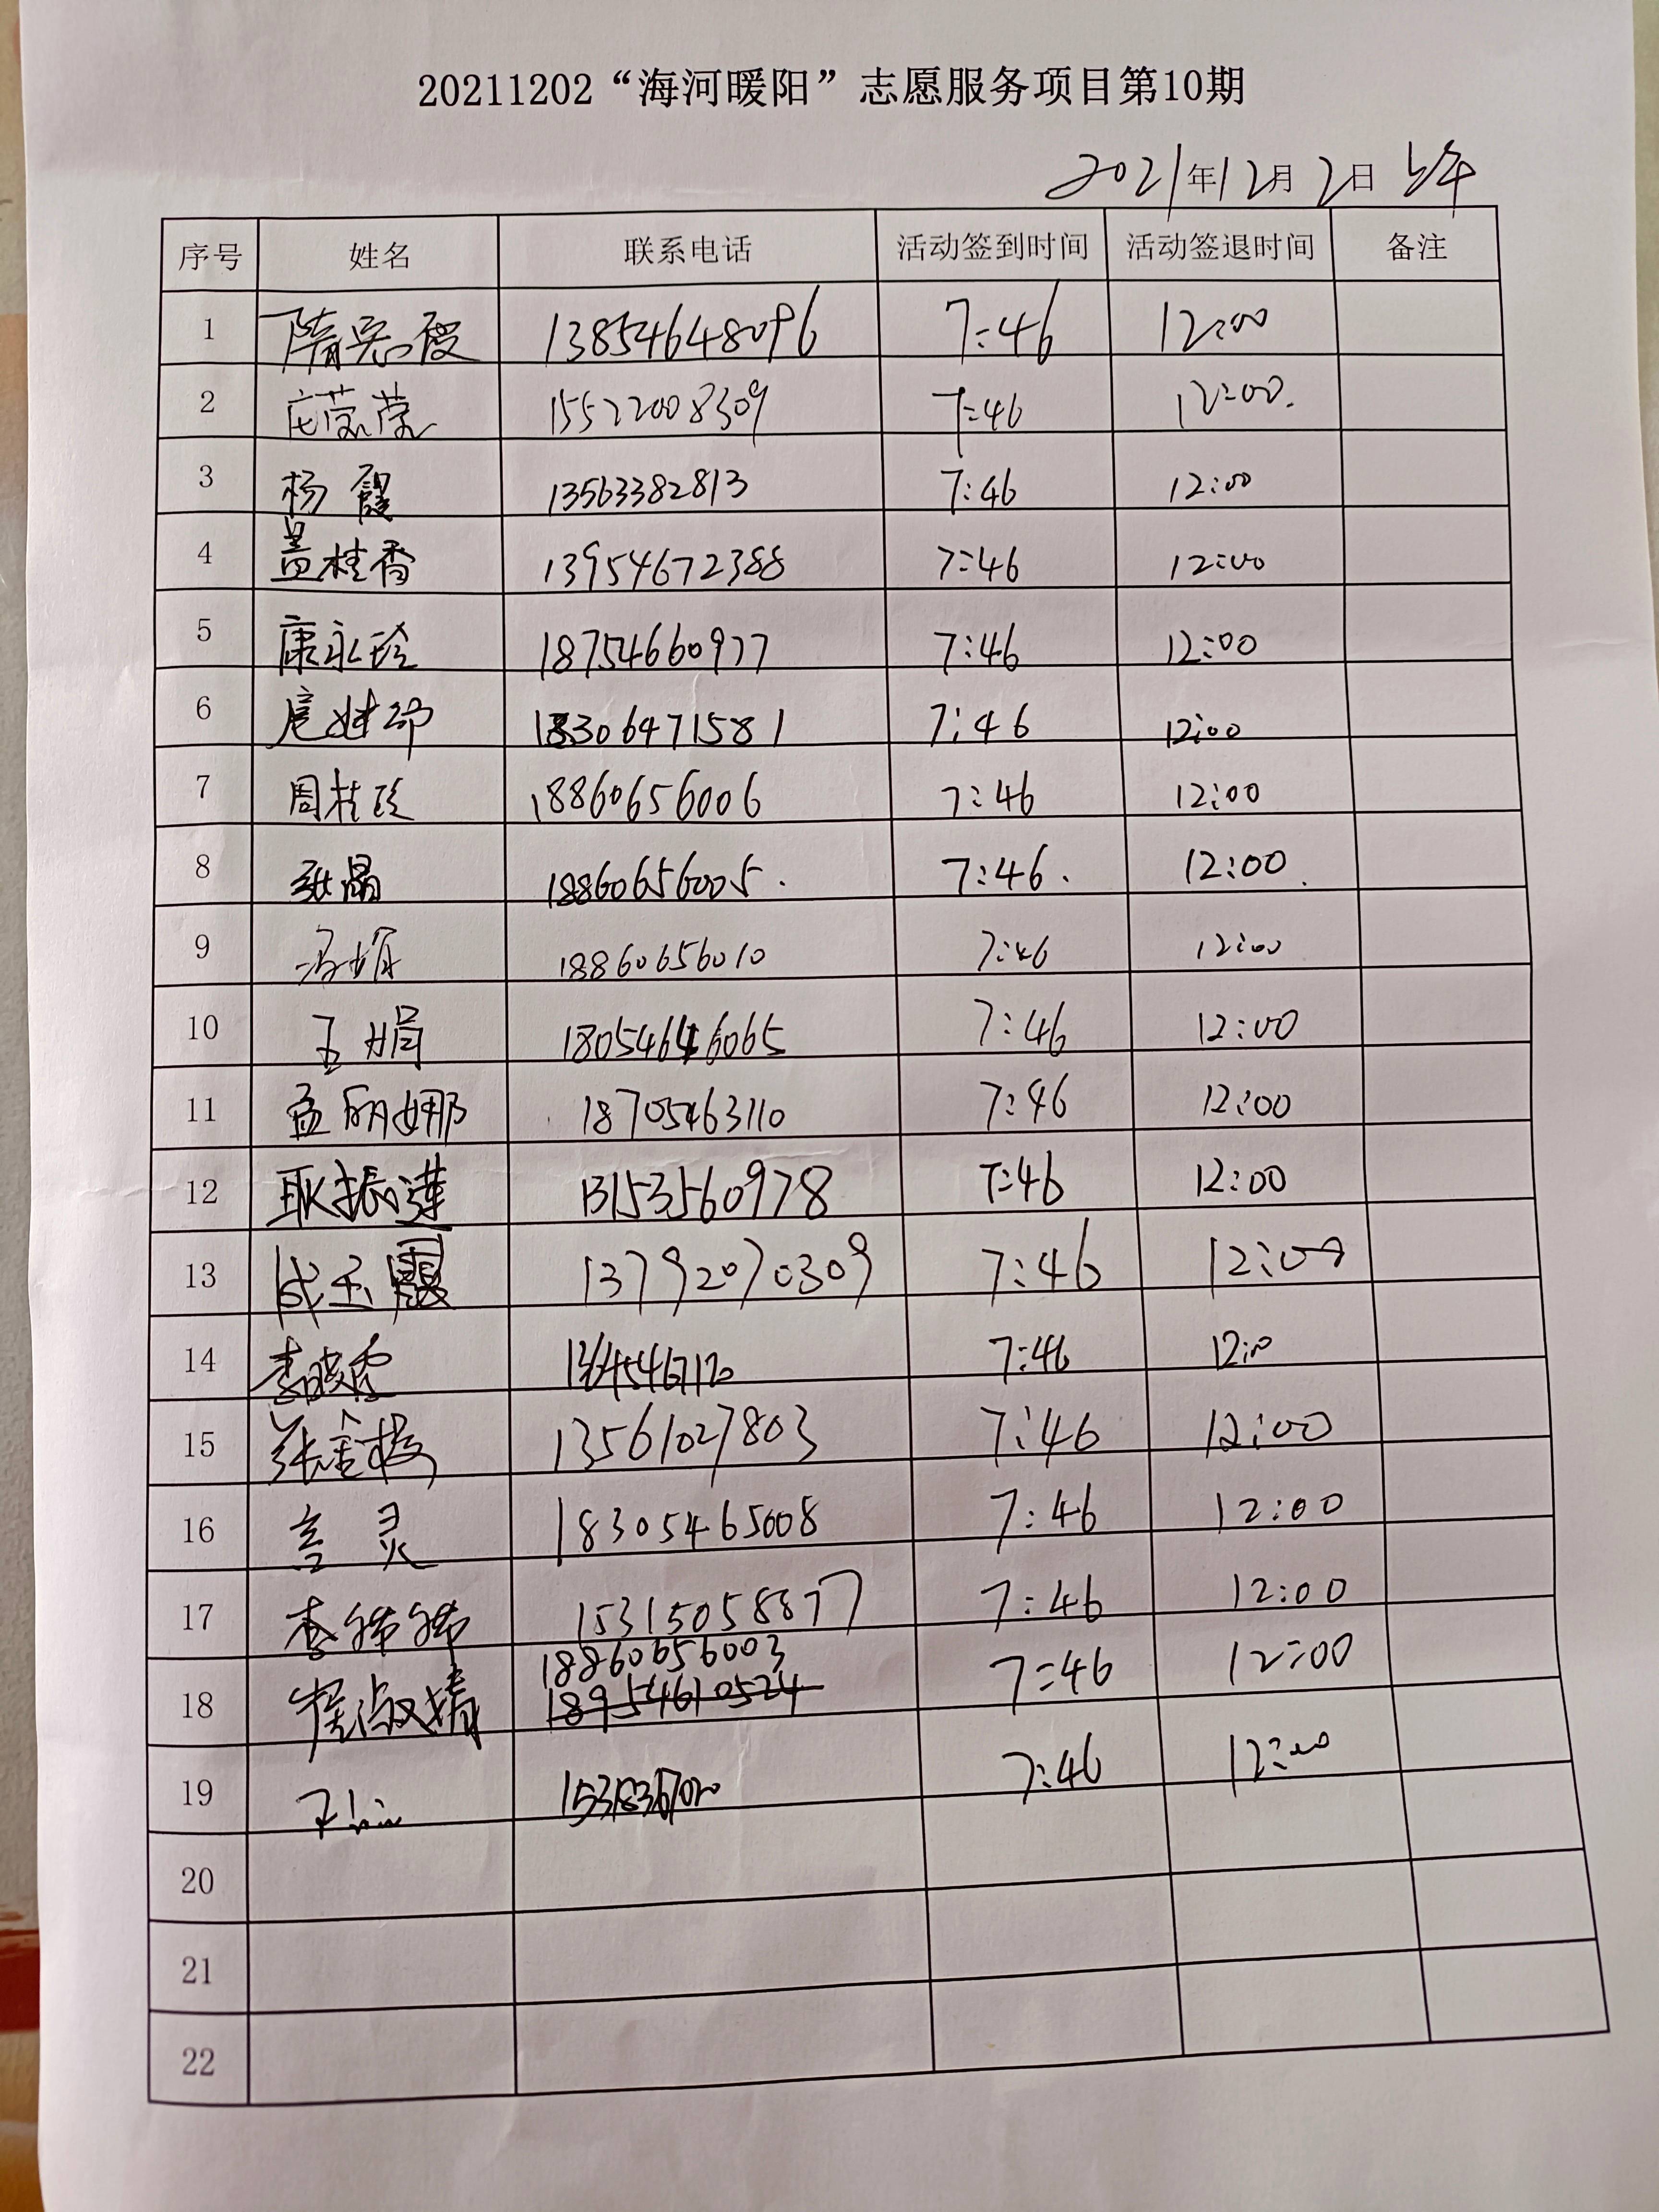 20211202“海河暖阳”志愿服务项目第10期
2021年12月2日 上午
序号 姓名 联系电话 活动签到时间 活动签退时间 备注
1 隋 霞 13854648096 7:46 12:00
2 莹莹 15522008309 7:46 12:00.
3 杨霞 13563382813 7:46 12:00
4 盖桂香 13954672388 7:46 12:00
5 康永玲 18754660977 7:46 12:00
6 18306471581 7:46 12:00
7 周桂珍 18860656006 7:46 12:00
8 张晶 18860656005. 7:46. 12:00.
9 冯娟 18860656010 7:46 12:00
10 王娟 18054646065 7:46 12:00
11 孟丽娜 18705463110 7:46 12:00
12 耿振莲 13153560978 7:46 12:00
13 成玉霞 13792070309 7:46 12:00
14 李晓雪 7:46 12:00
15 张金梅 13561027803 7:46 12:00
16 言灵 18305465008 7:46 12:00
17 李娜娜 15315058877 7:46 12:00
18 崔淑婧 18860656003 7:46 12:00
18954610524
19 7:46 12:00
20
21
22